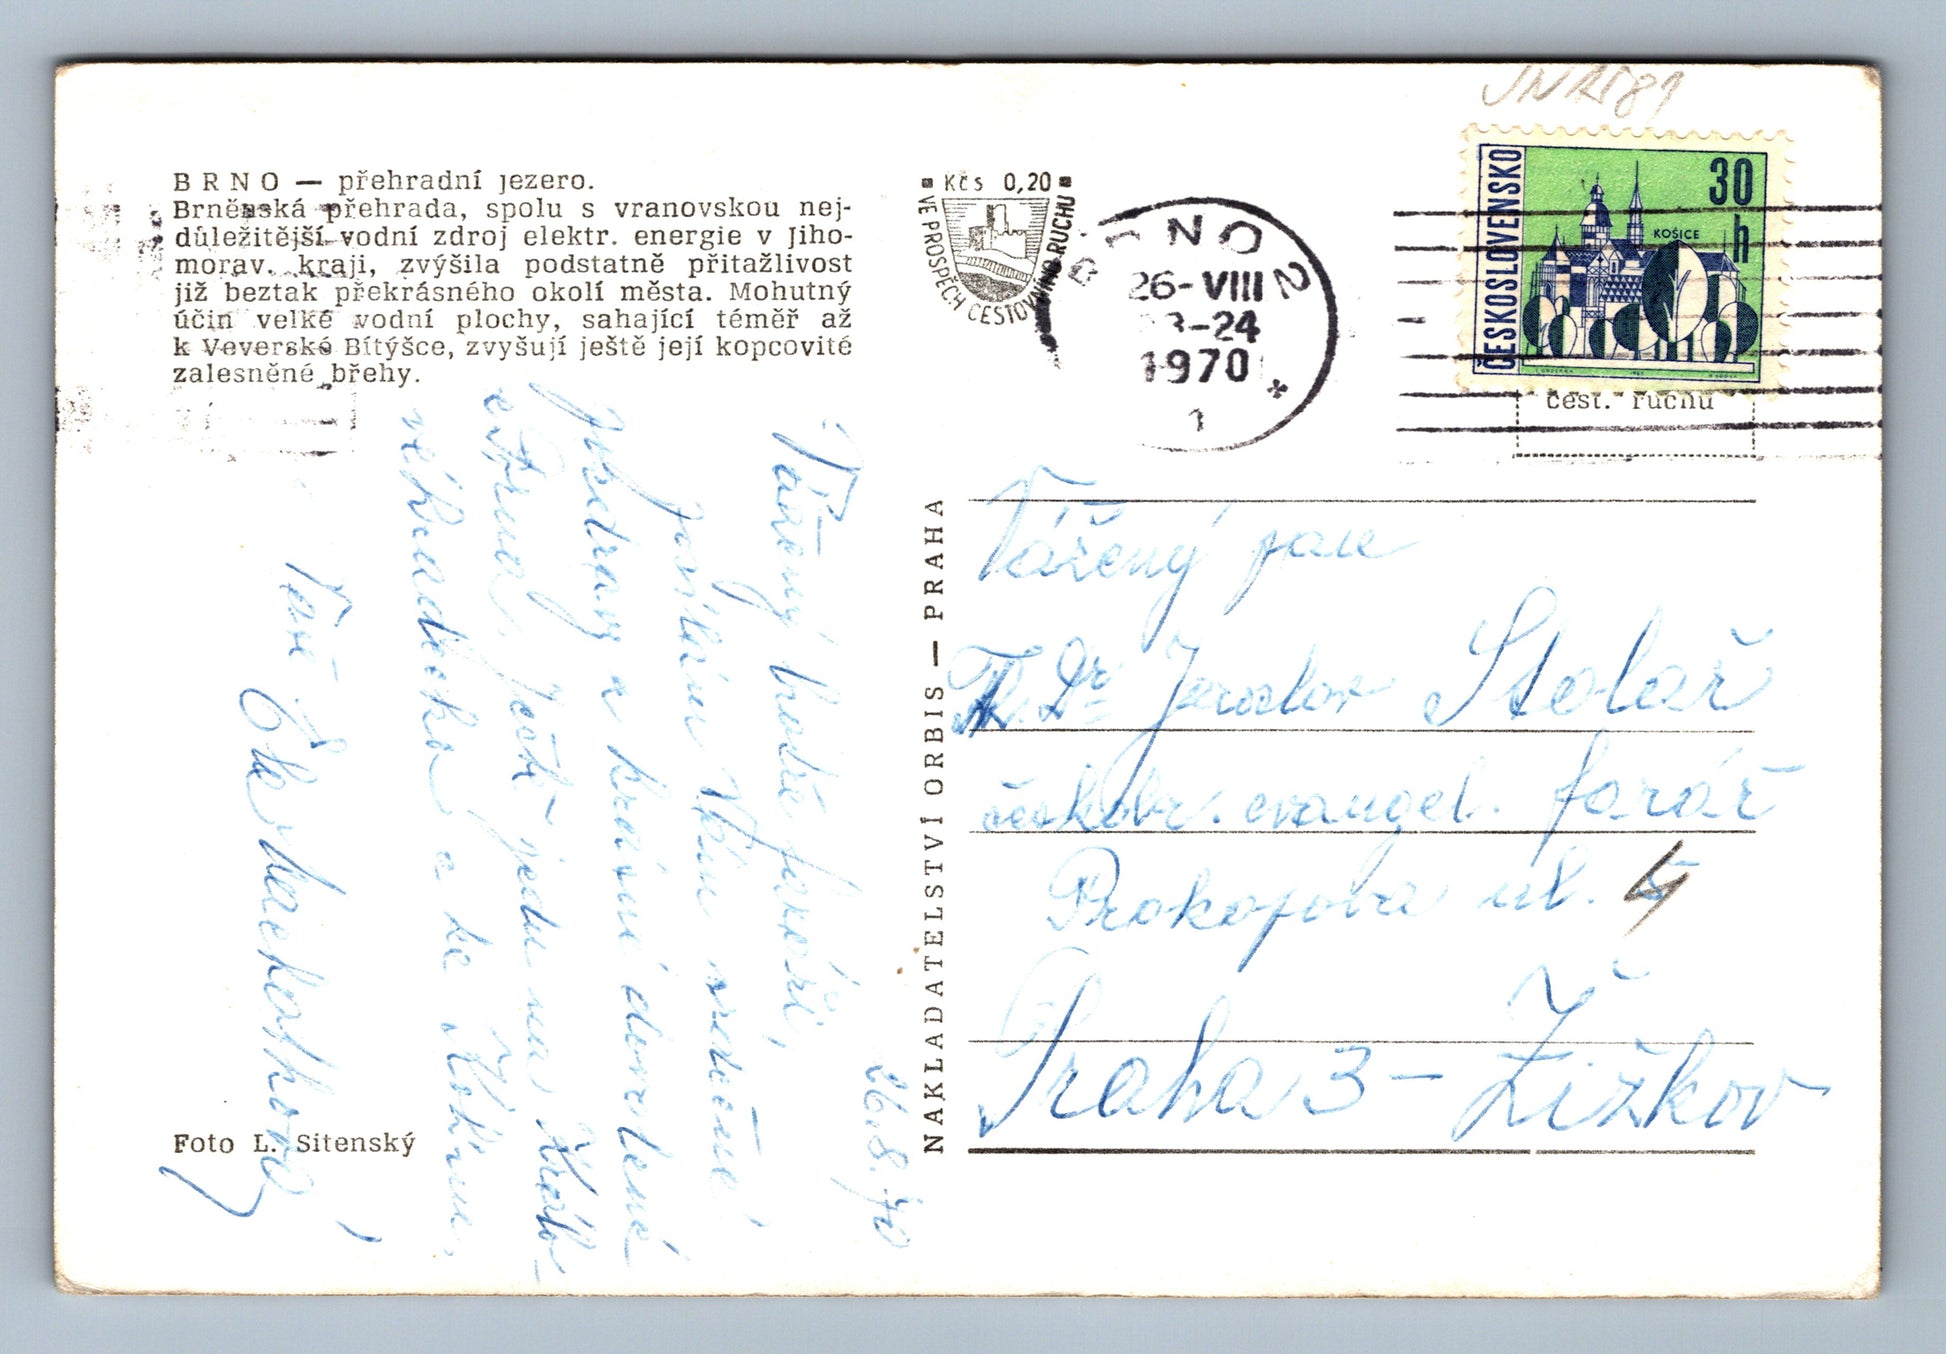 BRNO — přehradní jezero.
Brněnská přehrada, spolu s vranovskou nej-
důležitější vodní zdroj elektr. energie v Jiho-
morav. kraji, zvýšila podstatně přitažlivost
již beztak překrásného okolí města. Mohutný
účin velké vodní plochy, sahající téměř až
k Veverské Bítýšce, zvyšují ještě její kopcovité
zalesněné břehy.
Kčs 0,20
VE PROSPĚCH CESTOVNÍHO RUCHU
BRNO 2
26-VIII
-24
1970
1
*
ČESKOSLOVENSKO
30
h
KOŠICE
čest. ruchu
26.8.70
Vážený bratře faráři,
posílám Vám srdečné
pozdravy z krásné dovolené
z Brna. Ještě jedu na
a ke
Vaše
Vážený pan
Th. Dr Jaroslav Stolař
českobr. evangel. farář
Prokopova ul. 4
Praha 3 - Žižkov
NAKLADATELSTVÍ ORBIS — PRAHA
Foto L. Sitenský